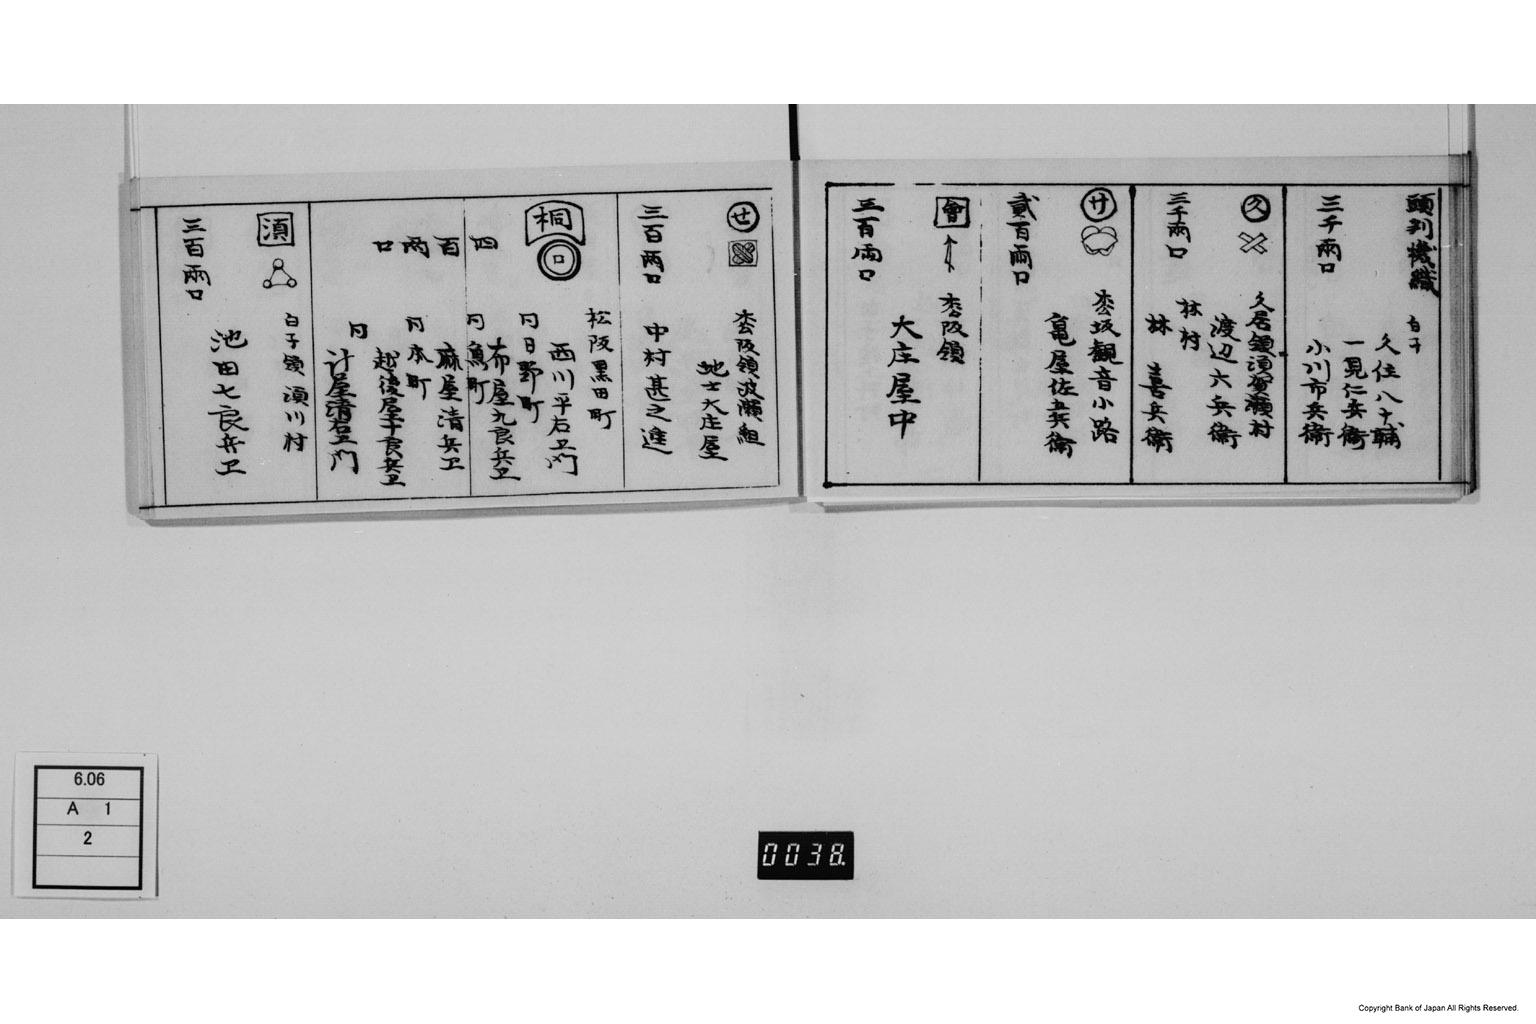 頭判機織
白子
久住八十輔
一見仁兵衛
小川市兵衛
三千両口
久
久居領須賀瀬村
渡辺六兵衛
林村
林 喜兵衛
三千両口
サ
枩坂観音小路
亀屋佐五兵衛
貳百両口
會
枩阪領
大庄屋中
五百両口
せ
枩阪領波瀬組
地士大庄屋
中村甚之進
三百両口
桐
口
松阪黒田町
西川平右卫门
同日野町
布屋九良兵卫
同魚町
麻屋清兵卫
同本町
越後屋十良兵卫
同
計屋清右卫门
四百両口
須
白子領須川村
池田七良兵卫
三百両口
6.06
A 1
2
0038.
Copyright Bank of Japan All Rights Reserved.